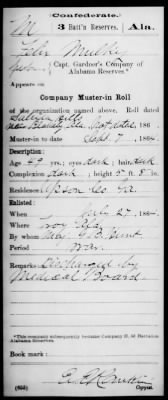 (Confederate.)
M 3 Batt'n Reserves. Ala.
Capt. Gardner's Company of
Alabama Reserves.*
Appears on
Company Muster-in Roll
of the organization named above. Roll dated
not dated, 186
Sept 7, 1864.
Description:
Age 49 yrs.; eyes dark; hair dark
Complexion dark; height 5 ft. 8 in.
Residence Upson Co. Ga.
Enlisted:
When July 27, 1864.
Where Troy Ala.
By whom Maj. Hunt
Period War.
Remarks Discharged by
Medical Board.
*This company subsequently became Company
Alabama Reserves.
Book mark:
Copyist.